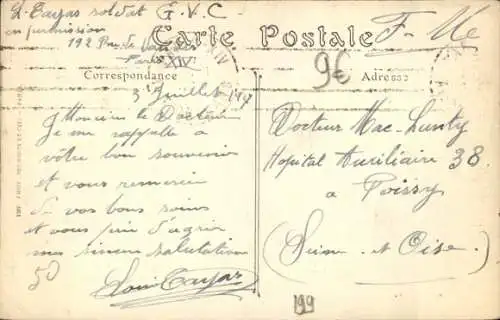 L. Tayar soldat G.V.C -
en permission
192 Rue de
Paris
XIV
F. Me
Carte Postale
9€
Correspondance
Adresse
3 Juillet 1917
Monsieur le Docteur
Je me rappelle à
vôtre bon souvenir
et vous remercie
de vos bons soins
et vous prie d'agréer
mes sincères salutations
50
Docteur Mac-Lunty
Hopital Auxiliaire 38
a Poissy
(Seine et Oise)
199